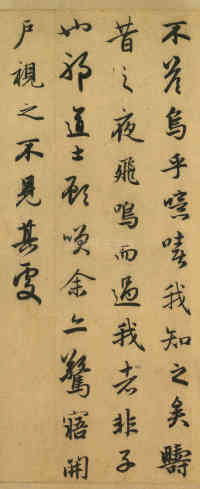 不荅烏乎噫嘻我知之矣疇
昔之夜飛鳴而過我者非子
也耶道士顧咲余亦驚寤開
戶視之不見其處